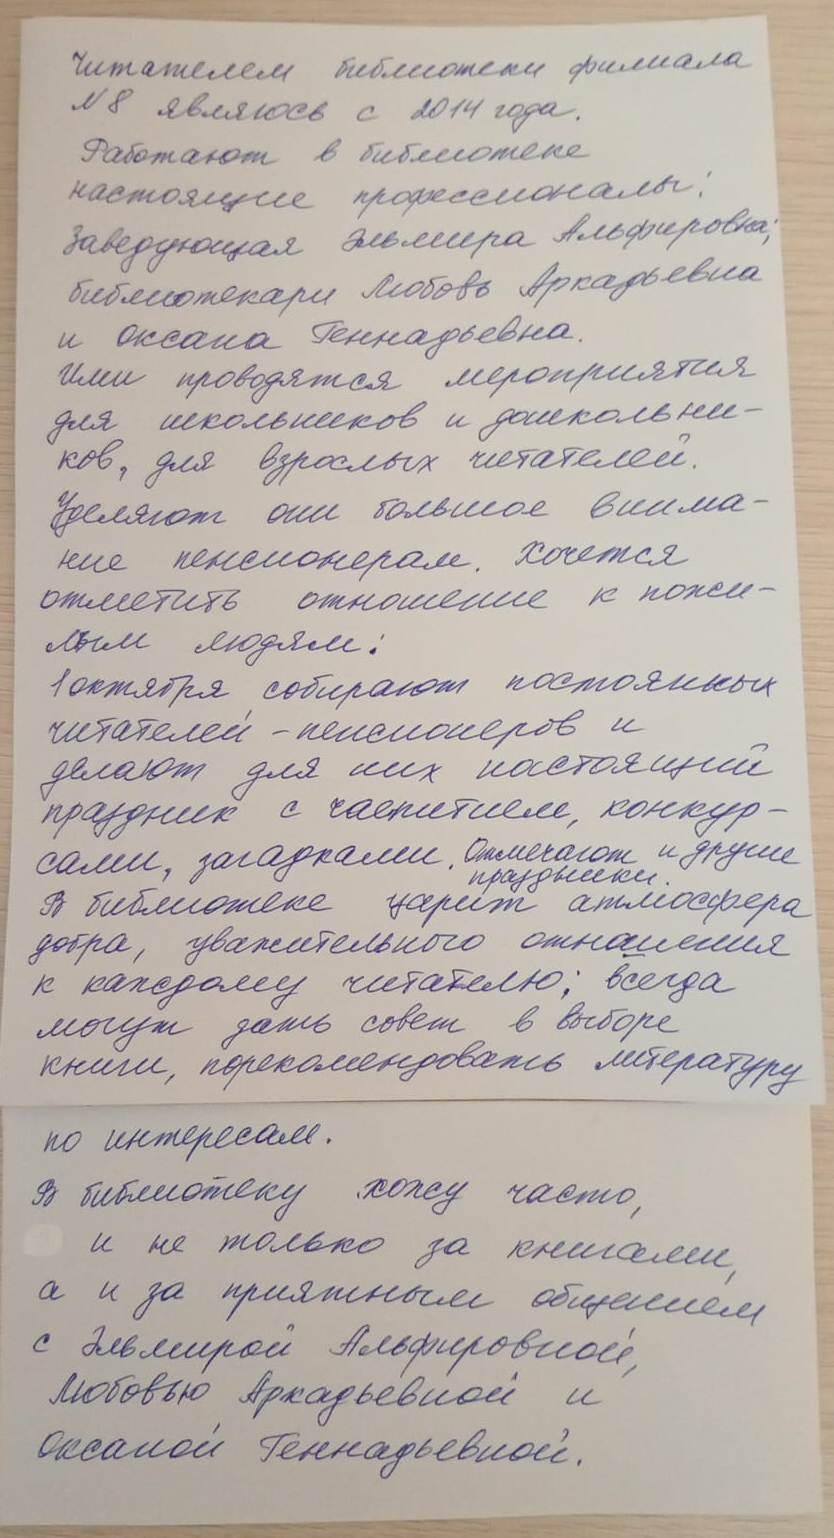 Читателем библиотеки филиала
№8 являюсь с 2014 года.
Работают в библиотеке
настоящие профессионалы:
Заведующая Эльмира Альфировна;
библиотекари Любовь Аркадьевна
и Оксана Геннадьевна.
Ими проводятся мероприятия
для школьников и дошкольни-
ков, для взрослых читателей.
Уделяют они большое внима-
ние пенсионерам. Хочется
отметить отношение к пожи-
лым людям:
1 октября собирают постоянных
читателей - пенсионеров и
делают для них настоящий
праздник с чаепитием, конкур-
сами, загадками. Отмечают и другие
праздники.
В библиотеке царит атмосфера
добра, уважительного отношения
к каждому читателю; всегда
могут дать совет в выборе
книги, порекомендовать литературу
по интересам.
В библиотеку хожу часто,
и не только за книгами,
а и за приятным общением
с Эльмирой Альфировной,
Любовью Аркадьевной и
Оксаной Геннадьевной.